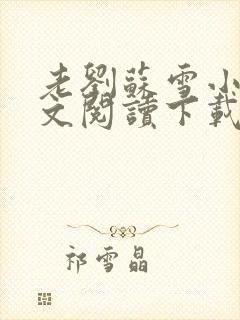 老劉蘇雪小
文閱讀下載
祁雪晶